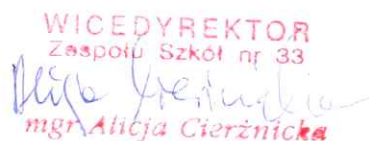 WICEDYREKTOR
Zespołu Szkół nr 33
mgr Alicja Cierżnicka